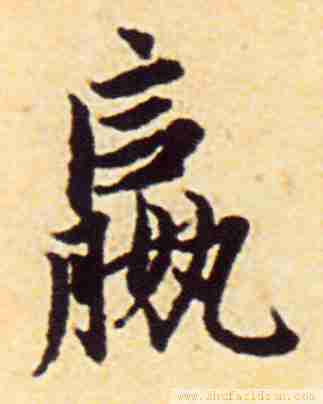 嬴
www.shufazidian.com